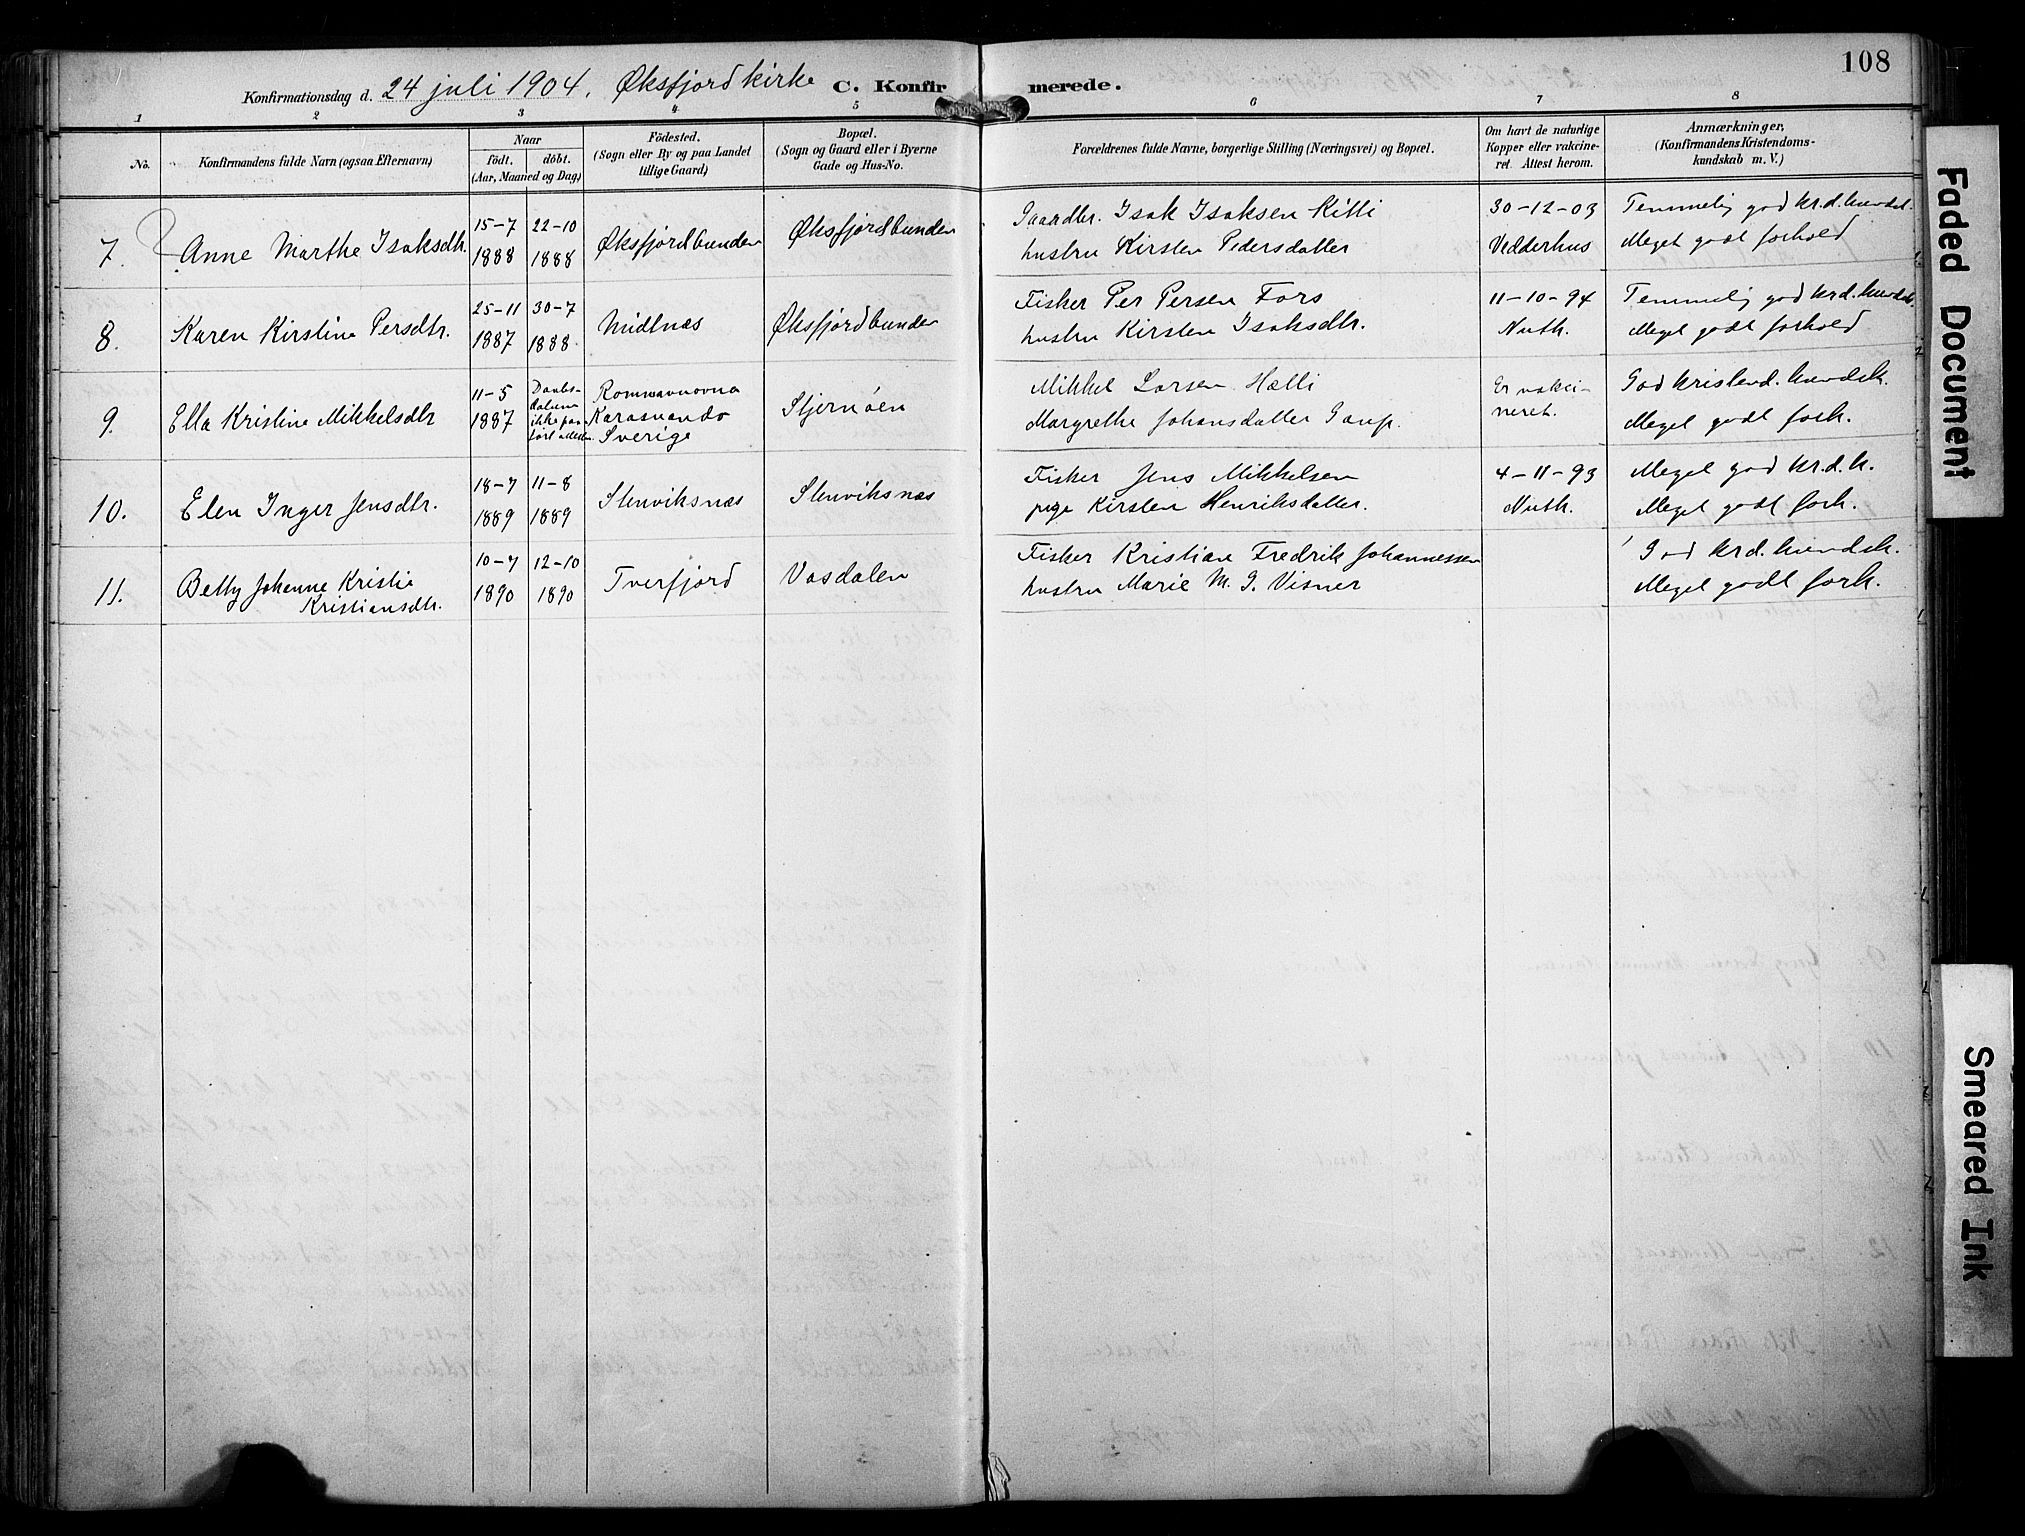 108
Konfirmationsdag d. 24 juli 1904. Øksfjord kirke C. Konfirmerede.
1 2 3 4 5 6 7 8
No.
Konfirmandens fulde Navn (ogsaa Efternavn)
Naar
födt. döbt.
(Aar, Maaned og Dag)
Födested.
(Sogn eller By og paa Landet
tillige Gaard)
Bopæl.
(Sogn og Gaard eller i Byerne
Gade og Hus-No.
Forældrenes fulde Navne, borgerlige Stilling (Næringsvei) og Bopæl.
Om havt de naturlige
Kopper eller vakcine-
ret. Attest herom.
Anmærkninger,
(Konfirmandens Kristendoms-
kundskab m. V.)
7. Anne Marthe Isaksdtr.
15-7
1888
22-10
1888
Øksfjordbunden
Øksfjordbunden
Gaardbr. Isak Isaksen Kitti
hustru Kirsten Pedersdatter
30-12-03
Vedderhus
Temmelig god kr.d.kundsk.
Meget godt forhold
8. Karen Kirstine Persdtr.
25-11
1887
30-7
1888
Midtnæs
Øksfjordbunden
Fisker Per Persen Fors
hustru Kirsten Isaksdtr.
11-10-94
Nuth.
Temmelig god krd.kundsk.
Meget godt forhold
9. Ella Kristine Mikkelsdtr
11-5
1887
Daabs-
datum
ikke paa-
ført attesten.
Rommavuovna
Karasuando
Sverige
Stjernøen
Mikkel Larsen Hætti
Margrethe Johansdatter Gaup.
Er vakci-
neret.
God kristend. kundsk.
Meget godt forh.
10. Elen Inger Jensdtr.
18-7
1889
11-8
1889
Stenviksnæs
Stenviksnæs
Fisker Jens Mikkelsen
pige Kirsten Henriksdatter.
4-11-93
Nuth.
Meget god kr.d.k.
Meget godt forh.
11. Betty Johanne Kristie
Kristiansdtr.
10-7
1890
12-10
1890
Tverfjord
Vasdalen
Fisker Kristian Fredrik Johannessen
hustru Marie M. G. Visner
God krd. kundsk.
Meget godt forh.
Faded Document
Smeared Ink